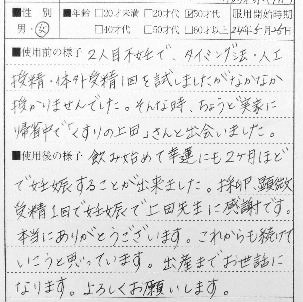 ■性別 ■年齢 □20才未満 □20才代 服用開始時期
男・女 □60才以上
■使用前の様子 2人目不妊で、タイミング法・人工
授精・体外受精1回を試しましたがなかなか
授かりませんでした。そんな時、ちょうど実家に
帰省中で「くすりの上田」さんと出会いました。
■使用後の様子 飲み始めて幸運にも2ヶ月ほど
で妊娠することが出来ました。採卵、顕微
受精1回で妊娠で上田先生に感謝です。
本当にありがとうございます。これからも続けて
いこうと思っています。出産までお世話に
なります。よろしくお願いします。